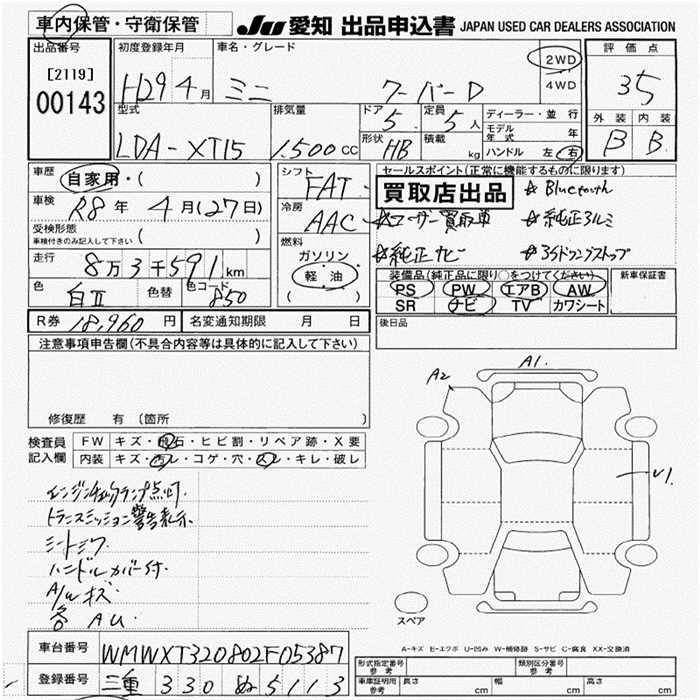 車内保管・守衛保管 JU 愛知 出品申込書 JAPAN USED CAR DEALERS ASSOCIATION
出品番号 初度登録年月 車名・グレード 2WD 4WD 評価点
[2119] 00143 H29年4月 ミニ クーパーD 3.5
型式 排気量 ドア 定員 ディーラー・並行 外装 内装
LDA-XT15 1.500cc 5 5人 モデル年式 年 B B
形状 HB 積載 kg ハンドル 左 右
車歴 自家用・( ) シフト FAT セールスポイント(正常に機能するものに限ります)
買取店出品 ☆Bluetooth
車検 R8年4月(27日) 冷房 AAC ☆ユーザー買取車 ☆純正アルミ
受検形態 車検付きのみ記入して下さい ( ) 燃料 ガソリン 軽油 ( )
☆純正ナビ ☆アイドリングストップ
走行 8万3千591km
装備品(純正品に限り○をつけてください) 新車保証書
色 白Ⅱ 色替 色コード 850 PS PW エアB AW
SR ナビ TV カワシート
R券 18,960円 名変通知期限 月 日 後日品
注意事項申告欄(不具合内容等は具体的に記入して下さい)
A2 A1
修復歴 有 (箇所 )
検査員記入欄 FW キズ・飛石・ヒビ割・リペア跡・X要
内装 キズ・汚レ・コゲ・穴・スレ・キレ・破レ
U1
エンジンチェックランプ点灯
トランスミッション警告表示
シートシワ
ハンドルカバー付
A/Wキズ
各 AU
スペア
A-キズ E-エクボ U-凹み W-補修跡 S-サビ C-腐食 XX-交換済
車台番号 WMWXT320802F05387
登録番号 三重 330 ぬ 5113
形式指定番号 参考 類別区分番号 参考
車庫証明用 参考 長さ cm 幅 cm 高さ cm